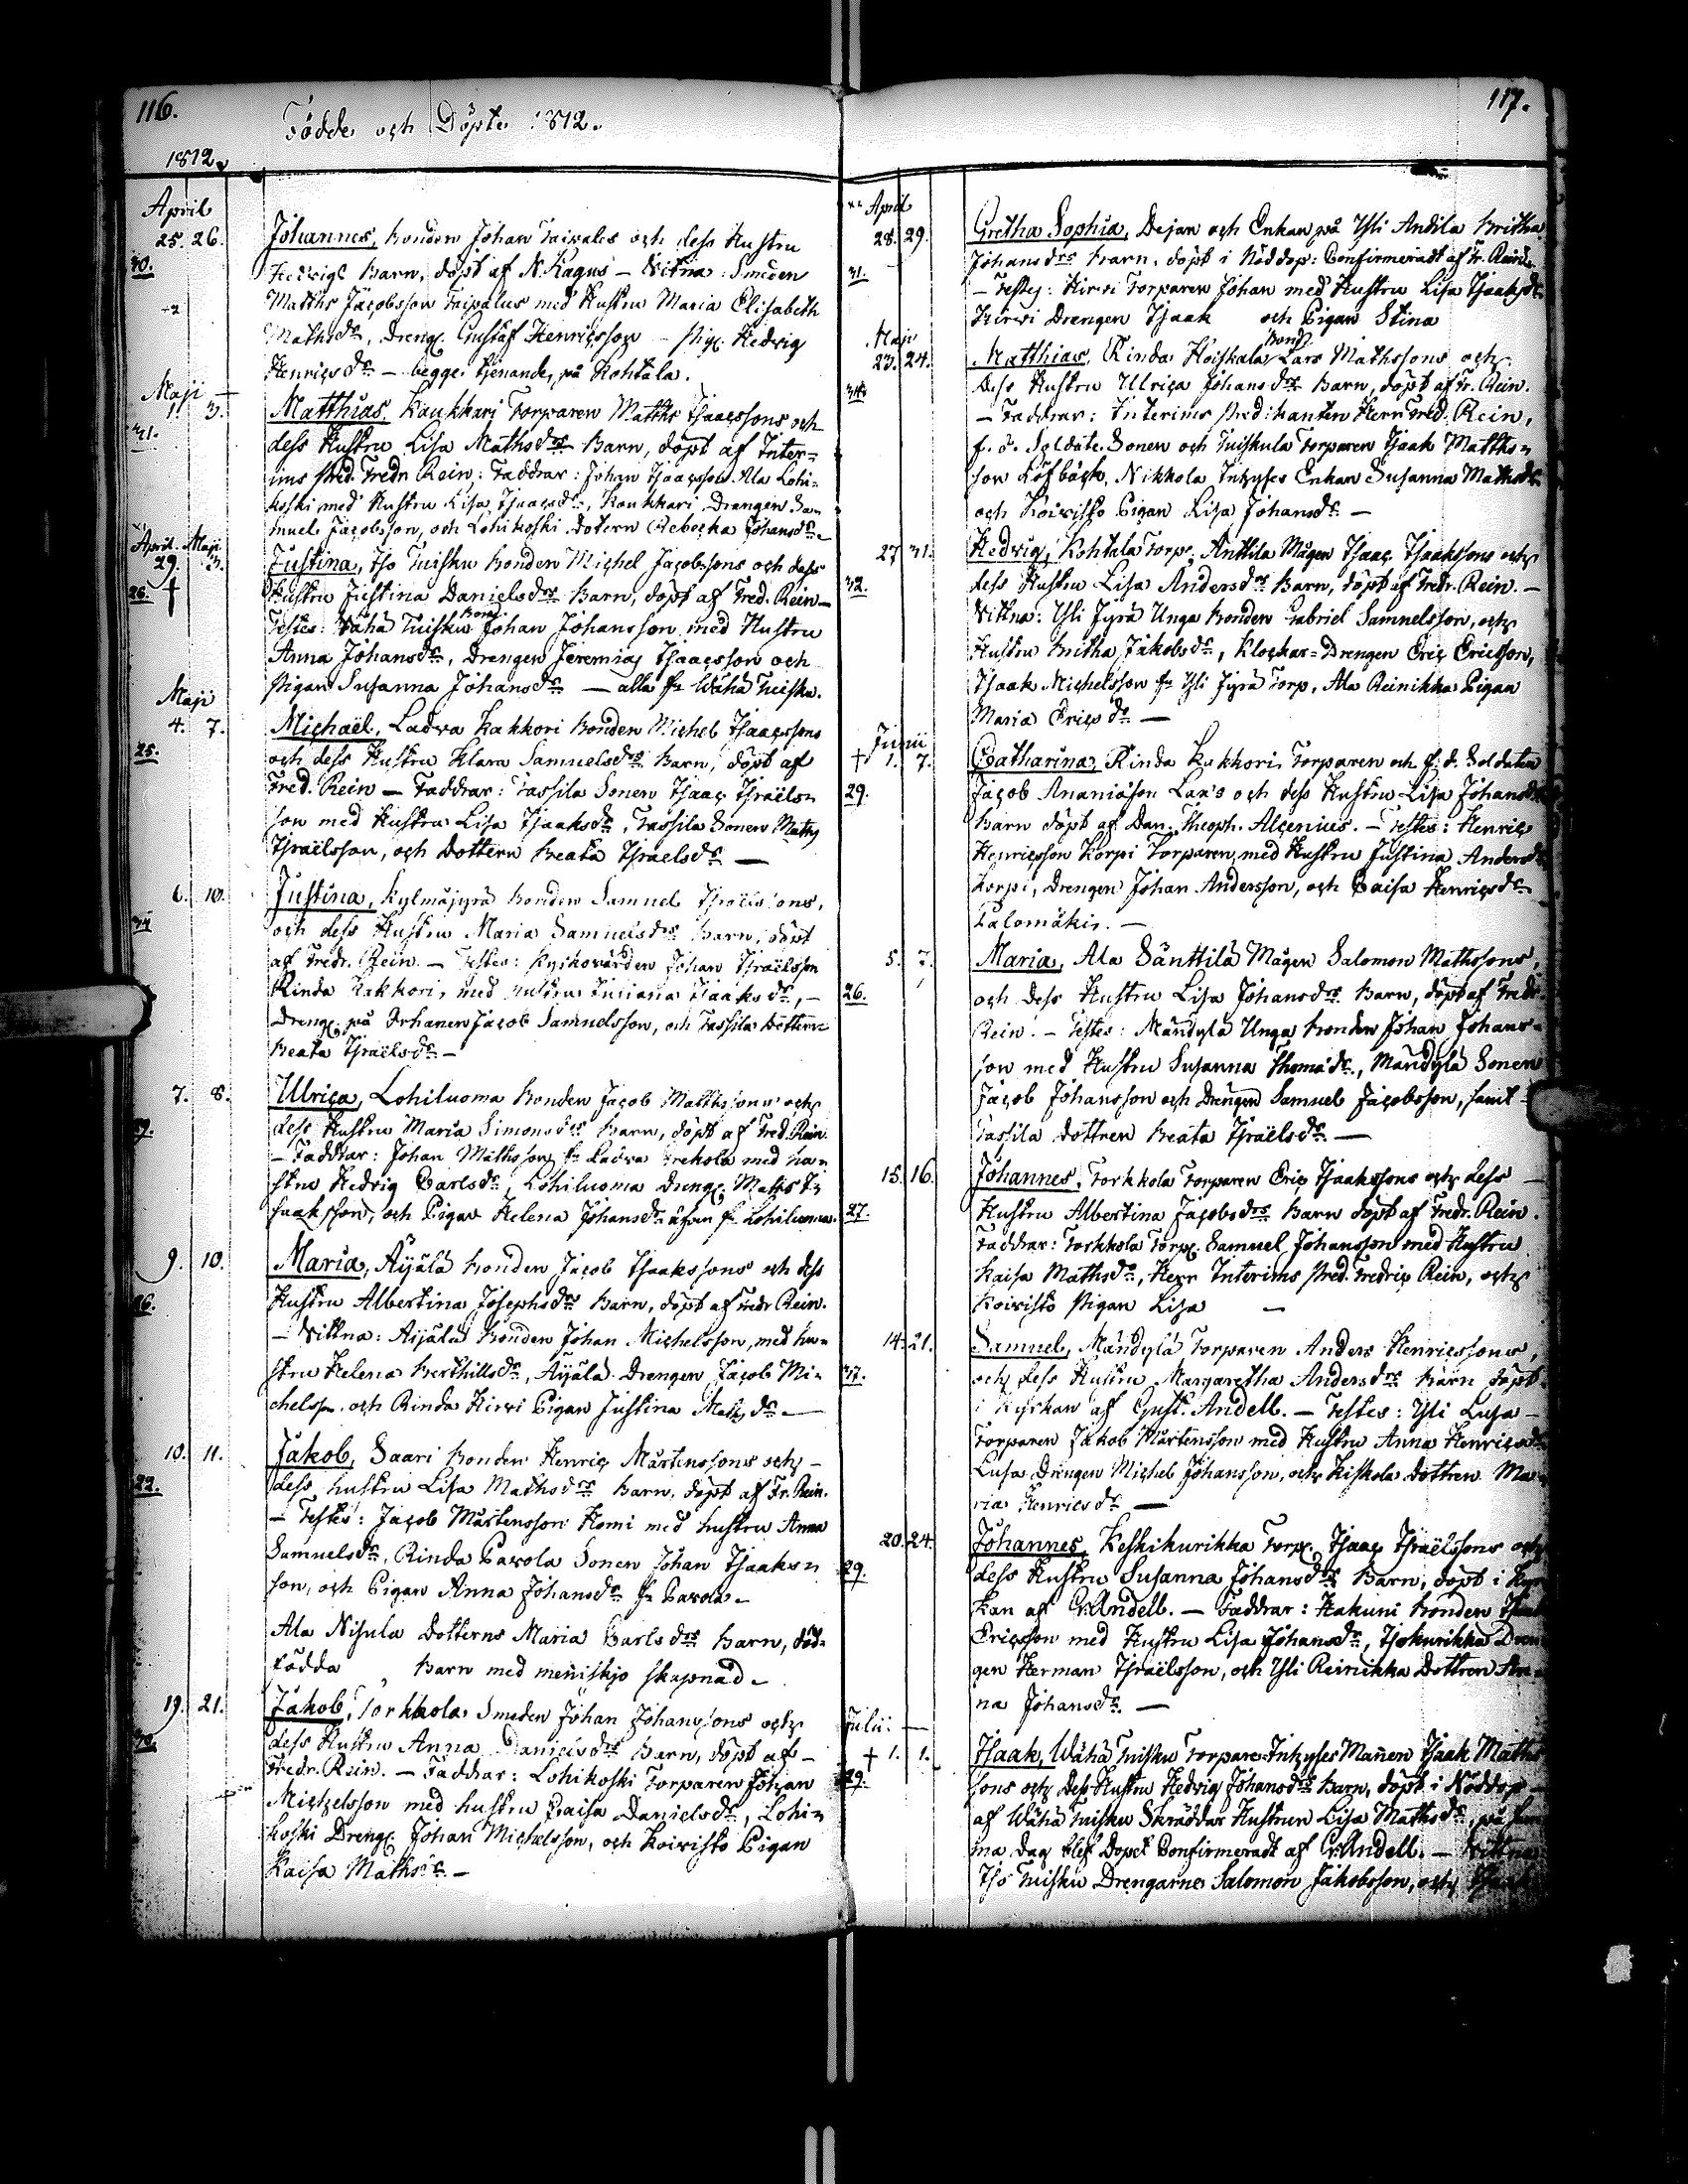 116.
Födde och Döpte 1812.
1812.
April
25. 26. Johannes, bonden Johan Taipalus och dess Hustru
30. Hedvigs Barn, döpt af N. Kagus – Vitna: Smeden
+2 Matths Jacobsson Taipalus med Hustru Maria Elisabeth
Mathsdr, Dreng. Gustaf Henricsson – Pig. Hedvig
Henricsdr – begge tjenande på Kohtala.
Maji
1. 3. Matthias, Kaukkari Torparen Matths Isaacssons och
31. dess Hustru Lisa Mathsdrs Barn, döpt af Inter-
ims Pred. Fredr Rein: Faddrar: Johan Isaacsson Ala Lohi-
koski med Hustru Lisa Isaacsdr, Kaukkari Drengen Sa-
muel Jacobsson, och Lohikoski Dotern Rebecka Johansdr –
April. Maji
29. 3. Justina, Iso Tuisku Bonden Michel Jacobssons och dess
26. † Hustru Justina Danielsdrs Barn, döpt af Fred. Rein –
Testes: Vähä Tuisku Bond Johan Johansson med Hustru
Anna Johansdr, Drengen Jeremias Isaacsson och
Pigan Susanna Johansdr – alla fr Wähä Tuisku.
Maji
4. 7. Michaël, Ladva Kakkori Bonden Michel Isaacssons
25. och dess Hustru Klara Samuelsdrs Barn, döpt af
Fred. Rein – Faddrar: Tassila Sonen Isaac Israels-
son med Hustru Lisa Isaaksdr, Tassila Sonen Maths
Israëlsson, och Dottern Beata Israelsdr –
6. 10. Justina, Kylmäjyrä Bonden Samuel Israëlssons,
34 och dess Hustru Maria Samuelsdrs Barn, döpt
af Fredr. Rein. – Testes: Kyrkovärden Johan Israëlsson
Rinda Kakkori, med Hustru Juliana Isaaksdr, –
Dreng. på Jacob Samuelsson, och Tassila Dottern
Beata Israëlsdr –
7. 8. Ulrica, Lohiluoma Bonden Jacob Mathssons och
dess Hustru Maria Simonsdrs Barn, döpt af Fred. Rein.
– Faddrar: Johan Mathsson fr Ladva med hu-
stru Hedvig Carlsdr, Lohiluoma Dreng. Maths I-
saaksson, och Pigan Helena Johansdr äfven fr Lohiluoma.
9. 10. Maria, Äijälä Bonden Jacob Isaakssons och dess
26. Hustru Albertina Josephsdrs Barn, döpt af Fredr Rein.
– Vittna: Äijälä Bonden Johan Michelsson, med hu-
stru Helena Berthillsdr, Äyälä Drengen Jacob Mi-
chelsson och Rinda Hirvi Pigan Justina Mathsdr –
10. 11. Jakob, Saari Bonden Henric Mårtenssons och –
22. dess hustru Lisa Mathsdrs Barn, döpt af Fr. Rein.
– Testes: Jacob Mårtensson Homi med hustru Anna
Samuelsdr, Rinda Pavola Sonen Johan Isaaks-
son, och Pigan Anna Johansdr fr Pavola –
Ala Nisula Dotterns Maria Carlsdrs Barn, död-
födda Barn med meniskjo skapnad –
19. 21. Jakob, Torkkola Smeden Johan Johanssons och
dess Hustru Anna Danielsdrs Barn, döpt af –
Fredr. Rein. – Faddrar: Lohikoski Torparen Johan
Michelsson med hustru Caisa Danielsdr, Lohi-
koski Dreng. Johan Michelsson, och Koivisto Pigan
Kaisa Mathsdr –
117.
April
28. 29. Gretha Sophia, Dejan och Enkan på Yli Andila Britha
31. Johansdrs Barn, döpt i Nöddop: Confirmeradt af Fr. Rein.
– Testes: Hirvi Torparen Johan med Hustru Lisa Isaaksdr
Hirvi Drengen Isaak och Pigan Stina
Maji
23. 24. Matthias, Rinda Koiskala Bond Lars Mathssons och
34. dess Hustru Ulrica Johansdrs Barn, döpt af Fr. Rein.
– Faddrar: Interims Predikanten Herr Fred. Rein,
f. d. Soldate Sonen och Tuiskula Torparen Isaak Maths-
son Löfbäck, Nikkola Inhyses Enkan Susanna Mathsdr
och Koivisto Pigan Lisa Johansdr –
27 31. Hedvig, Kohtala Torp. Anttila Mågen Isaac Isaakssons och
32. dess Hustru Lisa Andersdrs Barn, döpt af Fredr. Rein. –
Vittna: Yli Jyrä Unga Bonden Gabriel Samuelsson, och
Hustru Britha Jakobsdr, Klockar-Drengen Eric Ericsson,
Isaak Michelsson fr Yli Jyrä Torp, Ala Reinikka Pigan
Maria Ericsdr –
Junii
† 1. 7. Catharina, Rinda Kakkori Torparen och f. d. Soldaten
29. Jacob Ananiäson Lax's och dess Hustru Lisa Johansdrs
Barn döpt af Dan. Theoph. Alcenius. – Testes: Henric
Henricsson Korpi Torparen med Hustru Justina Andersdr
Korpi, Drengen Johan Andersson, och Caisa Henricsdr
Salomäki. –
5. 7. Maria, Ala Sänttilä Mågen Salomon Mathssons,
26. och dess Hustru Lisa Johansdrs Barn, döpt af Fredr.
Rein. – Testes: Mändylä Unga Bonden Johan Johans-
son med Hustru Susanna Thomædr., Mändylä Sonen
Jacob Johansson och Drengen Samuel Jacobsson, samt
Tassila dottren Beata Israëlsdr –
15. 16. Johannes, Torkkola Torparen Eric Isaakssons och dess –
27. Hustru Albertina Jacobsdrs Barn döpt af Fredr. Rein.
Faddrar: Torkkola Torp. Samuel Johansson med Hustru
Kaisa Mathsdr, Herr Interims Pred. Fredric Rein, och
Koivisto Pigan Lisa –
14. 21. Samuel, Mändylä Torparen Anders Henricssons,
37. och dess Hustru Margaretha Andersdrs Barn döpt
i Kyrkan af Gust. Andell. – Testes: Yli Lusa –
Torparen Jakob Mårtensson med Hustru Anna Henricsdr
Lusa Drengen Michel Johansson, och Kiskola dottren Ma-
ria Henricsdr –
20. 24. Johannes, Keskikurikka Torp. Isaac Israëlssons och
29. dess Hustru Susanna Johansdrs Barn, döpt i Kyr-
kan af G. Andell. – Faddrar: Hakuni Bonden Isaak
Ericsson med Hustru Lisa Johansdr, Isokurikka Dren-
gen Herman Israëlsson, och Yli Reinikka Dottren An-
na Johansdr. –
Julii: –
† 1. 1. Isaak, Wähä Tuisku Torpare Inhyses Mannen Isaak Maths-
29. sons och dess Hustru Hedvig Johansdrs Barn, döpt i Nöddop –
af Wähä Tuisku Skräddar Hustrun Lisa Mathsdr, på sam-
ma dag blef Dopet Confirmeradt af G. Andell. – Vittna
Iso Tuisku Drengarne Salomon Jakobsson, och Isaak